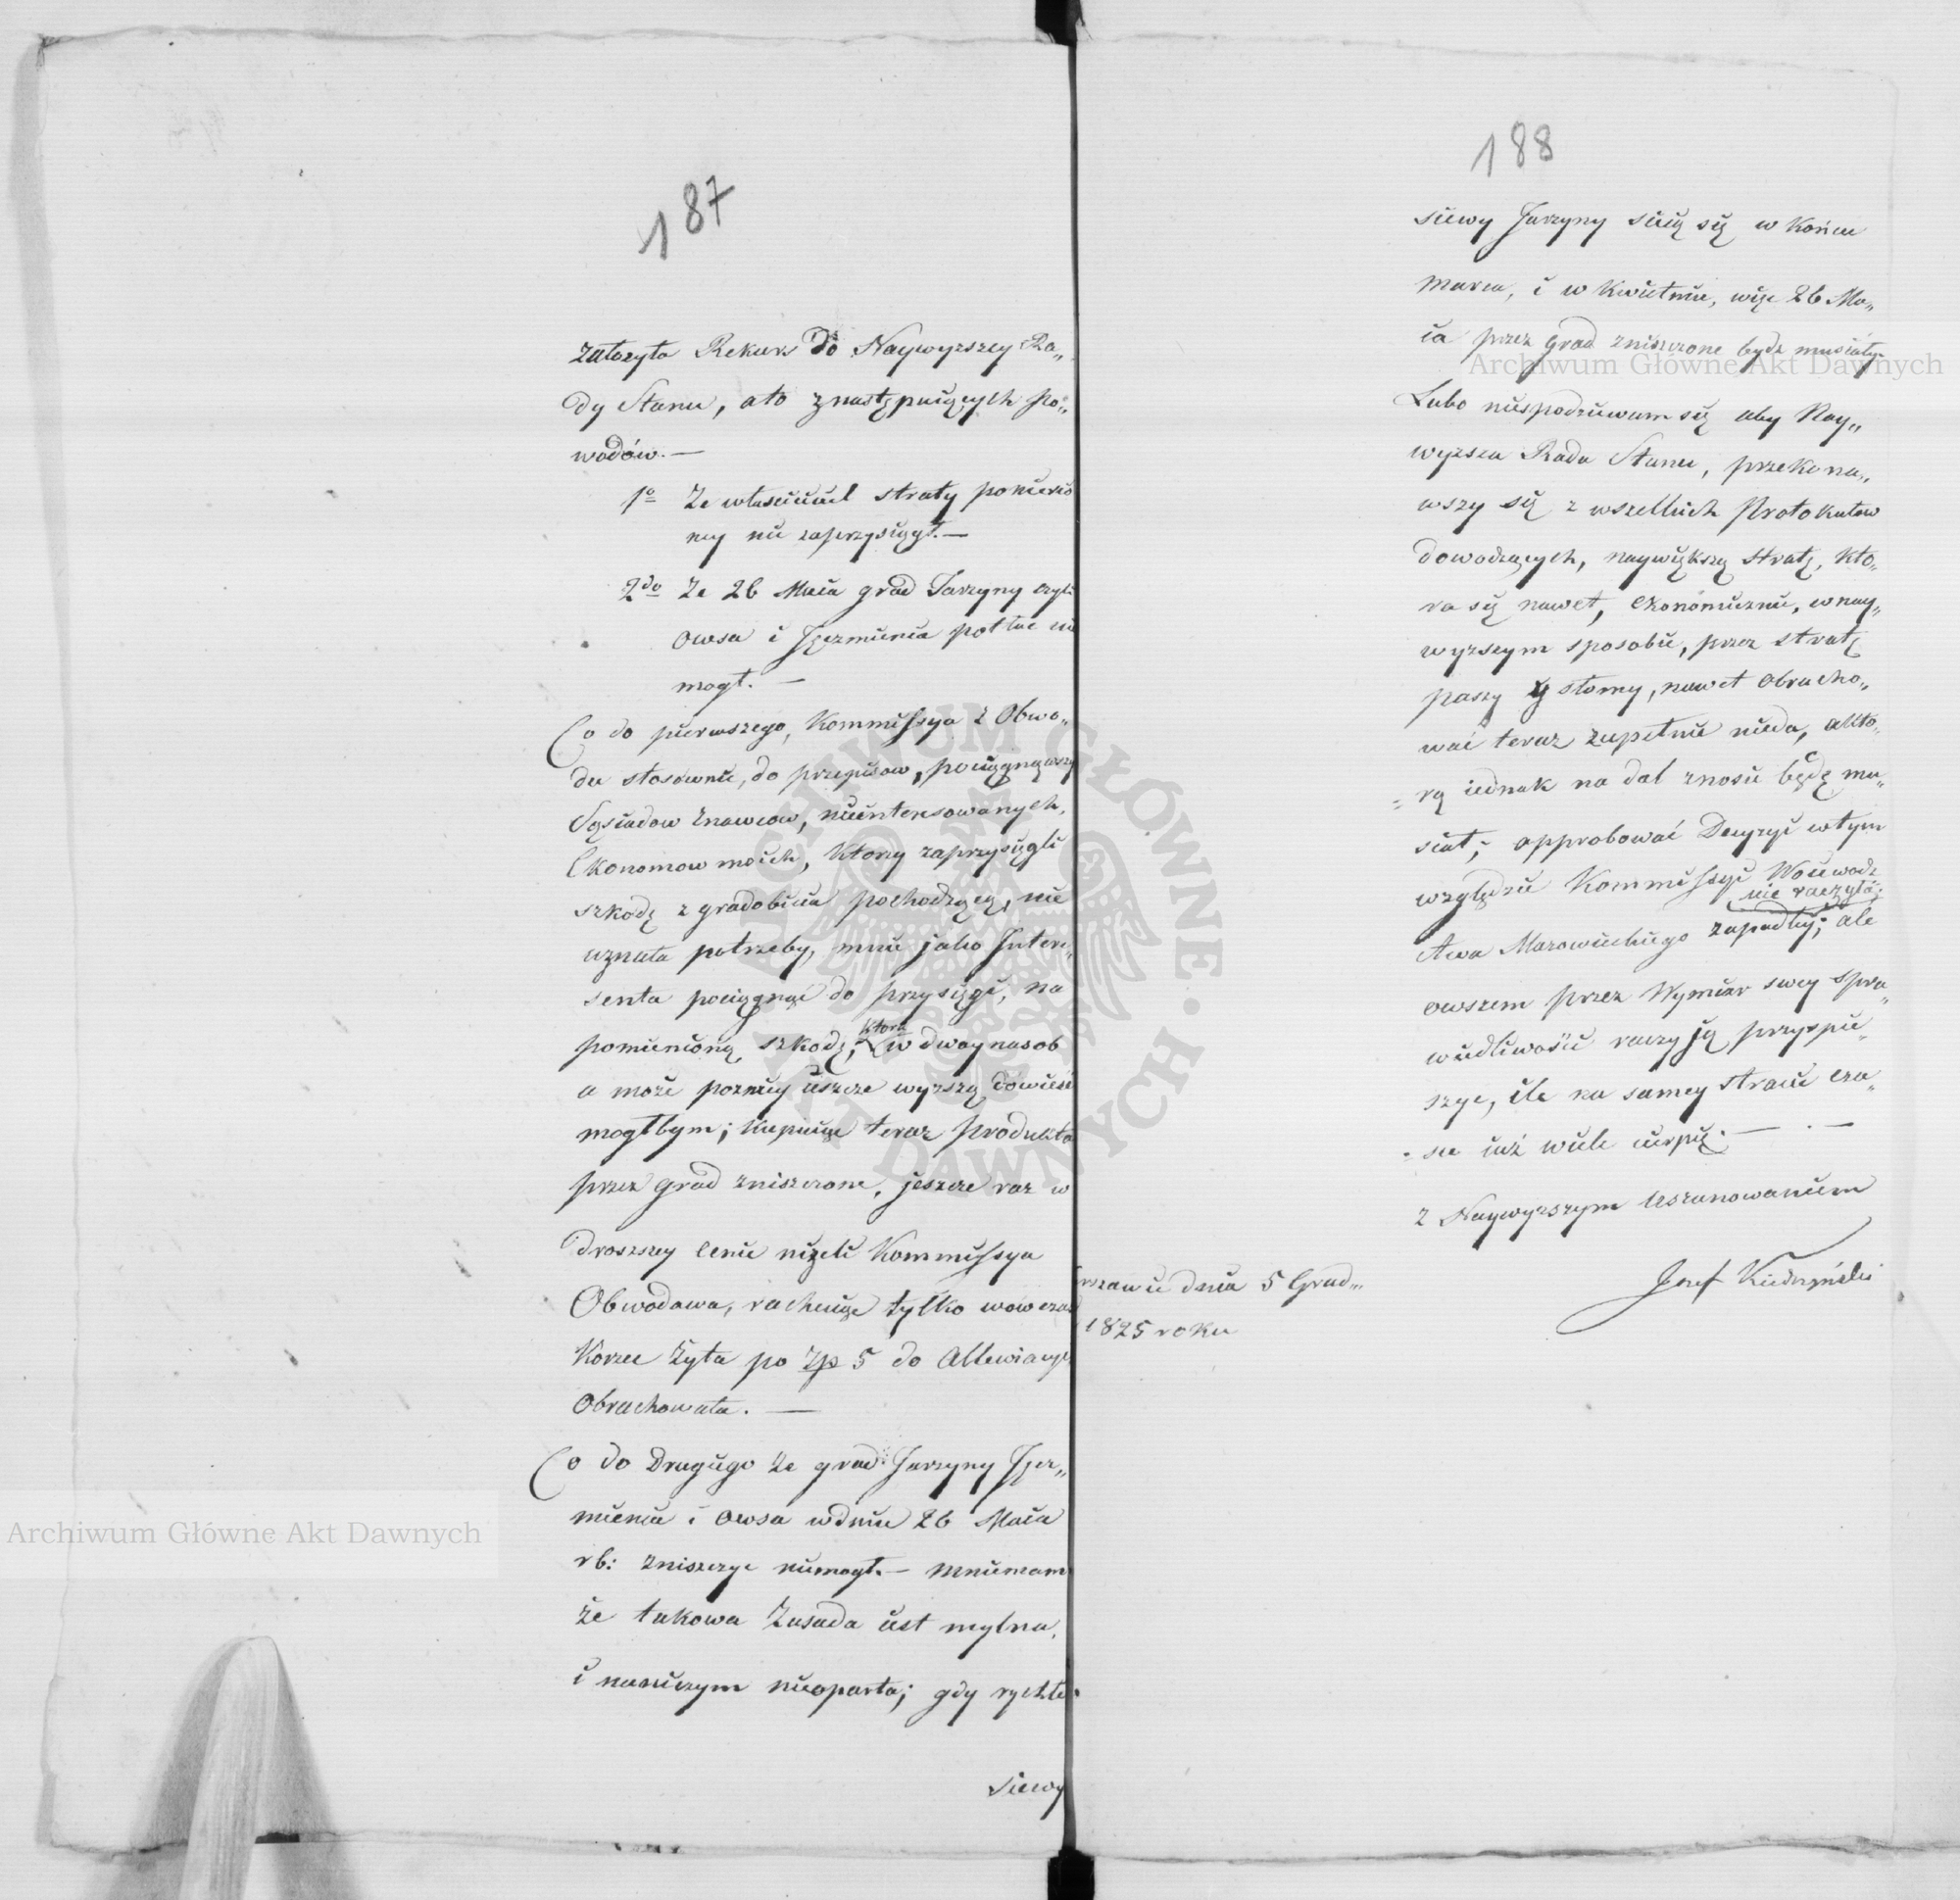 187
założyła Rekurs do Naywyzszey Ra„
dy Stanu, ato znastępuiących po„
wodów.—
1o Ze właściciel straty poniesio
ney nie zaprzysiągł.—
2do Ze 26 Maia grad Jarzyny czyli
owsa i Jęczmienia potłuc nie
mogł.—
Co do pierwszego, Kommissya z Obwo„
du stosownie, do przepisow, pociągnąwszy
Sąsiadow znawcow, nieinteresowanych,
Ekonomow moich, ktorzy zaprzysięgli
szkodę z gradobicia pochodzącą, nie
uznała potrzeby, mnie jako Intere„
senta pociągnąć do przysięgi, na
pomienioną szkodę, ktorą w dwoynasob
a może pozniey ieszcze wyzszą dowieść
mogłbym; kupuiąc teraz produkta
przez grad zniszczone, jeszcze raz w
droszszey cenie niżeli Kommissya
Obwodowa, rachuiąc tylko wowczas
Korzec Żyta po Zp 5 do Allewiacyi
Obrachowała.—
Co do Drugiego Ze grad Jarzyny Jęcz„
mienia i Owsa wdniu 26 Maia
rb: zniszczyc niemogł.— mniemam
że takowa Zasada iest mylna,
i naniczym nieoparta; gdy rychłe
siewy
188
siewy Jarzyny sieią się w Końcu
Marca, i w Kwietniu, więc 26 Ma„
ia przez grad zniszczone bydz musiały.
Lubo niespodziewam się aby Nay„
wyzsza Rada Stanu, przekona„
wszy się z wszelkich Protokułow
dowodzących, naywiększą stratę, kto„
ra się nawet, ekonomicznie, wnay„
wyzszym sposobie, przez stratę
paszy y słomy, nawet obracho„
wać teraz zupełnie nieda, a kto„
rą iednak na dal znosić będę mu„
siał; approbować Decyzyi wtym
względzie Kommissyi Woiewodz
nie raczyła;
twa Mazowieckiego zapadłey; ale
owszem przez Wymiar swey spra„
wiedliwości raczy ją przyspie„
szyc, ile na samey stracie cza„
su iuż wiele cierpię.—
z Naywyzszym Uszanowaniem
Jozef Kiedrzyński
rszawie dnia 5 Grud„
1825 roku
Archiwum Główne Akt Dawnych
Archiwum Główne Akt Dawnych
ARCHIWUM GŁÓWNE · AKT DAWNYCH ·